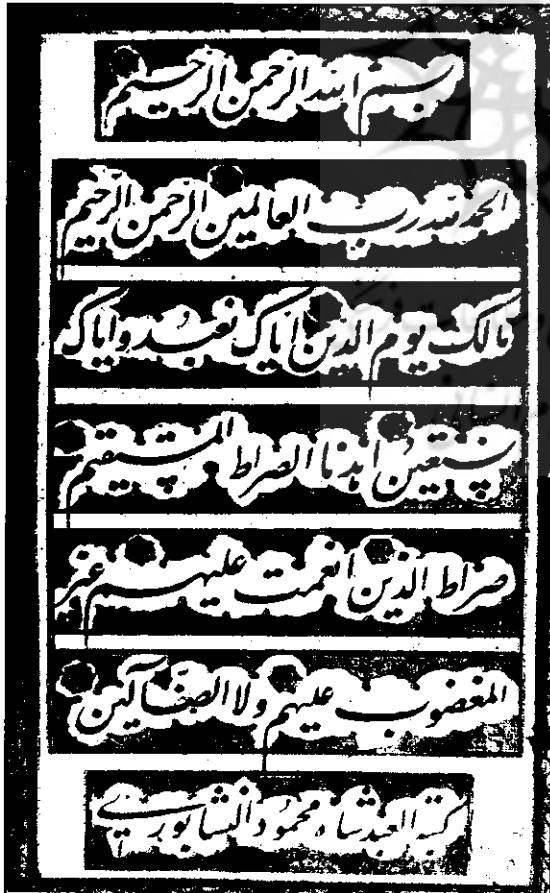 بسم الله الرحمن الرحيم
الحمد لله رب العالمين الرحمن الرحيم
مالك يوم الدين اياك نعبد واياك
نستعين اهدنا الصراط المستقيم
صراط الذين انعمت عليهم غير
المغضوب عليهم ولا الضآلين
كتبه العبد شاه محمود النيشابوري